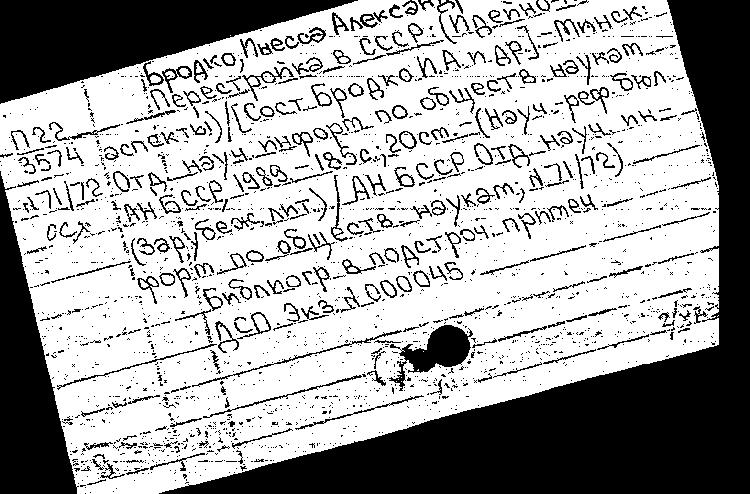 Бродко, Пьесса Александр
Перестройка в СССР: (Идейно-
аспекты) / [Сост. Бродко П.А. и др.] - Минск:
Отд. науч. информ. по обществ. наукам
АН БССР, 1989. - 185с.; 20см. - (Науч.-реф. бюл.
(Зарубеж. лит.) / АН БССР Отд. науч. ин=
форм. по обществ. наукам; N 71/72)
Библиогр. в подстроч. примеч.
ДСП. Экз. N 000045
П22
3574
N 71/72
осх